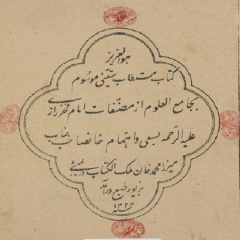 هوالعزیز
کتاب مستطاب ستینی موسوم
بجامع العلوم از مصنفات امام فخر رازی
علیه الرحمه بسعی و اهتمام خالصاحب جناب
میرزا محمد خان ملک الکتاب
بزیور طبع درآمد
۱۳۲۳